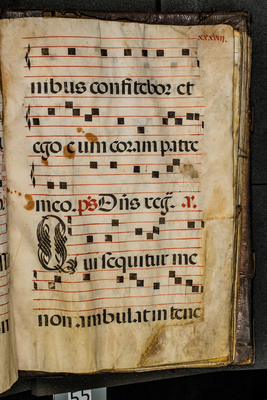 xxxviij.
nibus confitebor et
ego eum coram patre
meo. ps Dñs reg. a.
Qui sequitur me
non ambulat in tene
55